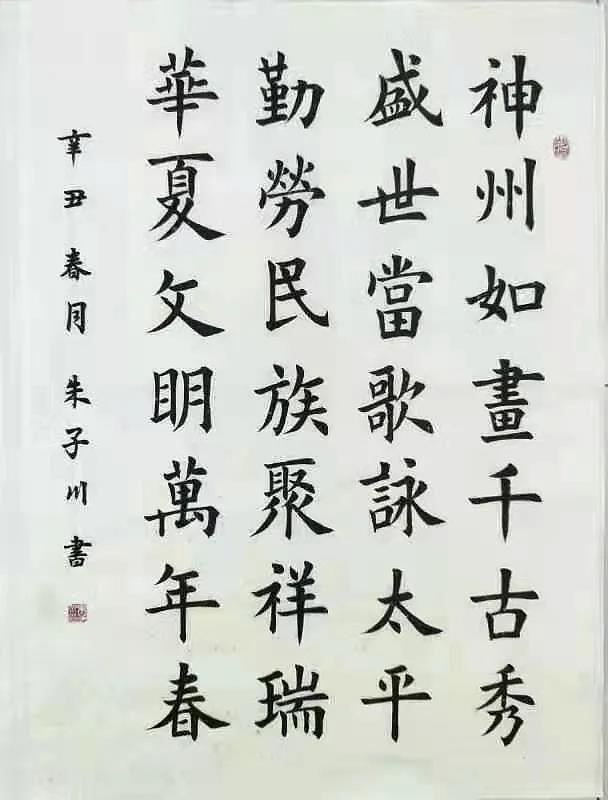 神州如畫千古秀
盛世當歌詠太平
勤勞民族聚祥瑞
華夏文明萬年春
辛丑春月 朱子川書